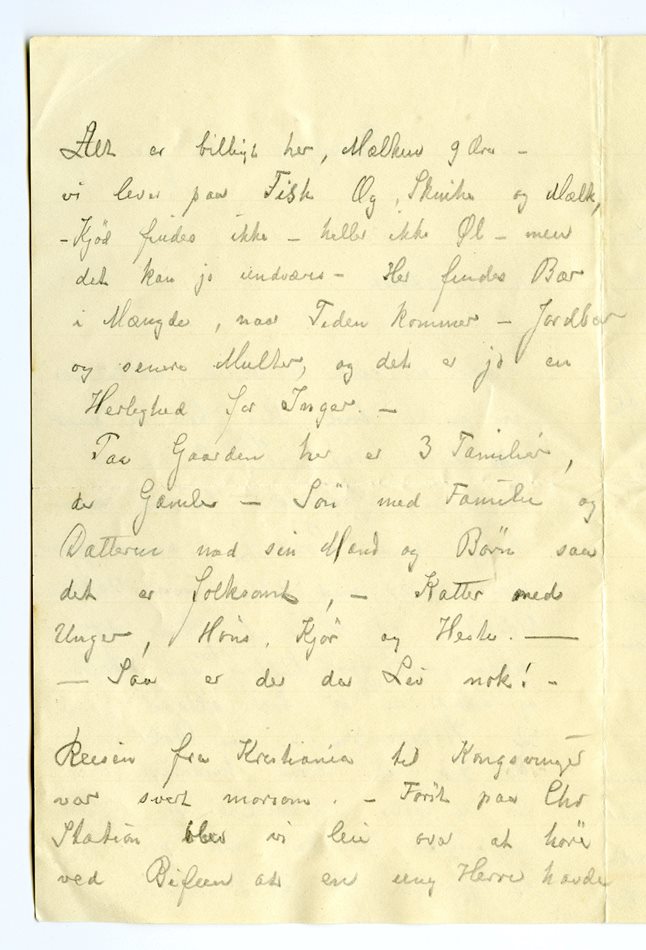 Alt er billigt her, Mælken 9 Øre –
vi lever paa Fisk Æg, Skinke og Mælk,
– Kjød findes ikke – heller ikke Øl – men
det kan jo undværes – Her findes Bær
i Mængde, naar Tiden kommer – Jordbær
og senere Multer, og det er jo en
Herlighed for Inger. –
Paa Gaarden her er 3 Familier,
de Gamle – Sön med Familie og
Datteren med sin Mand og Börn saa
det er folksomt, – Katter med
Unger, Höns, Kjör og Heste. –
– Saa er der da Liv nok! –
Reisen fra Kristiania til Kongsvinger
var svært morsom. – Först paa
Station blev vi leie over at höre
ved Bifeen at en ung Herre havde